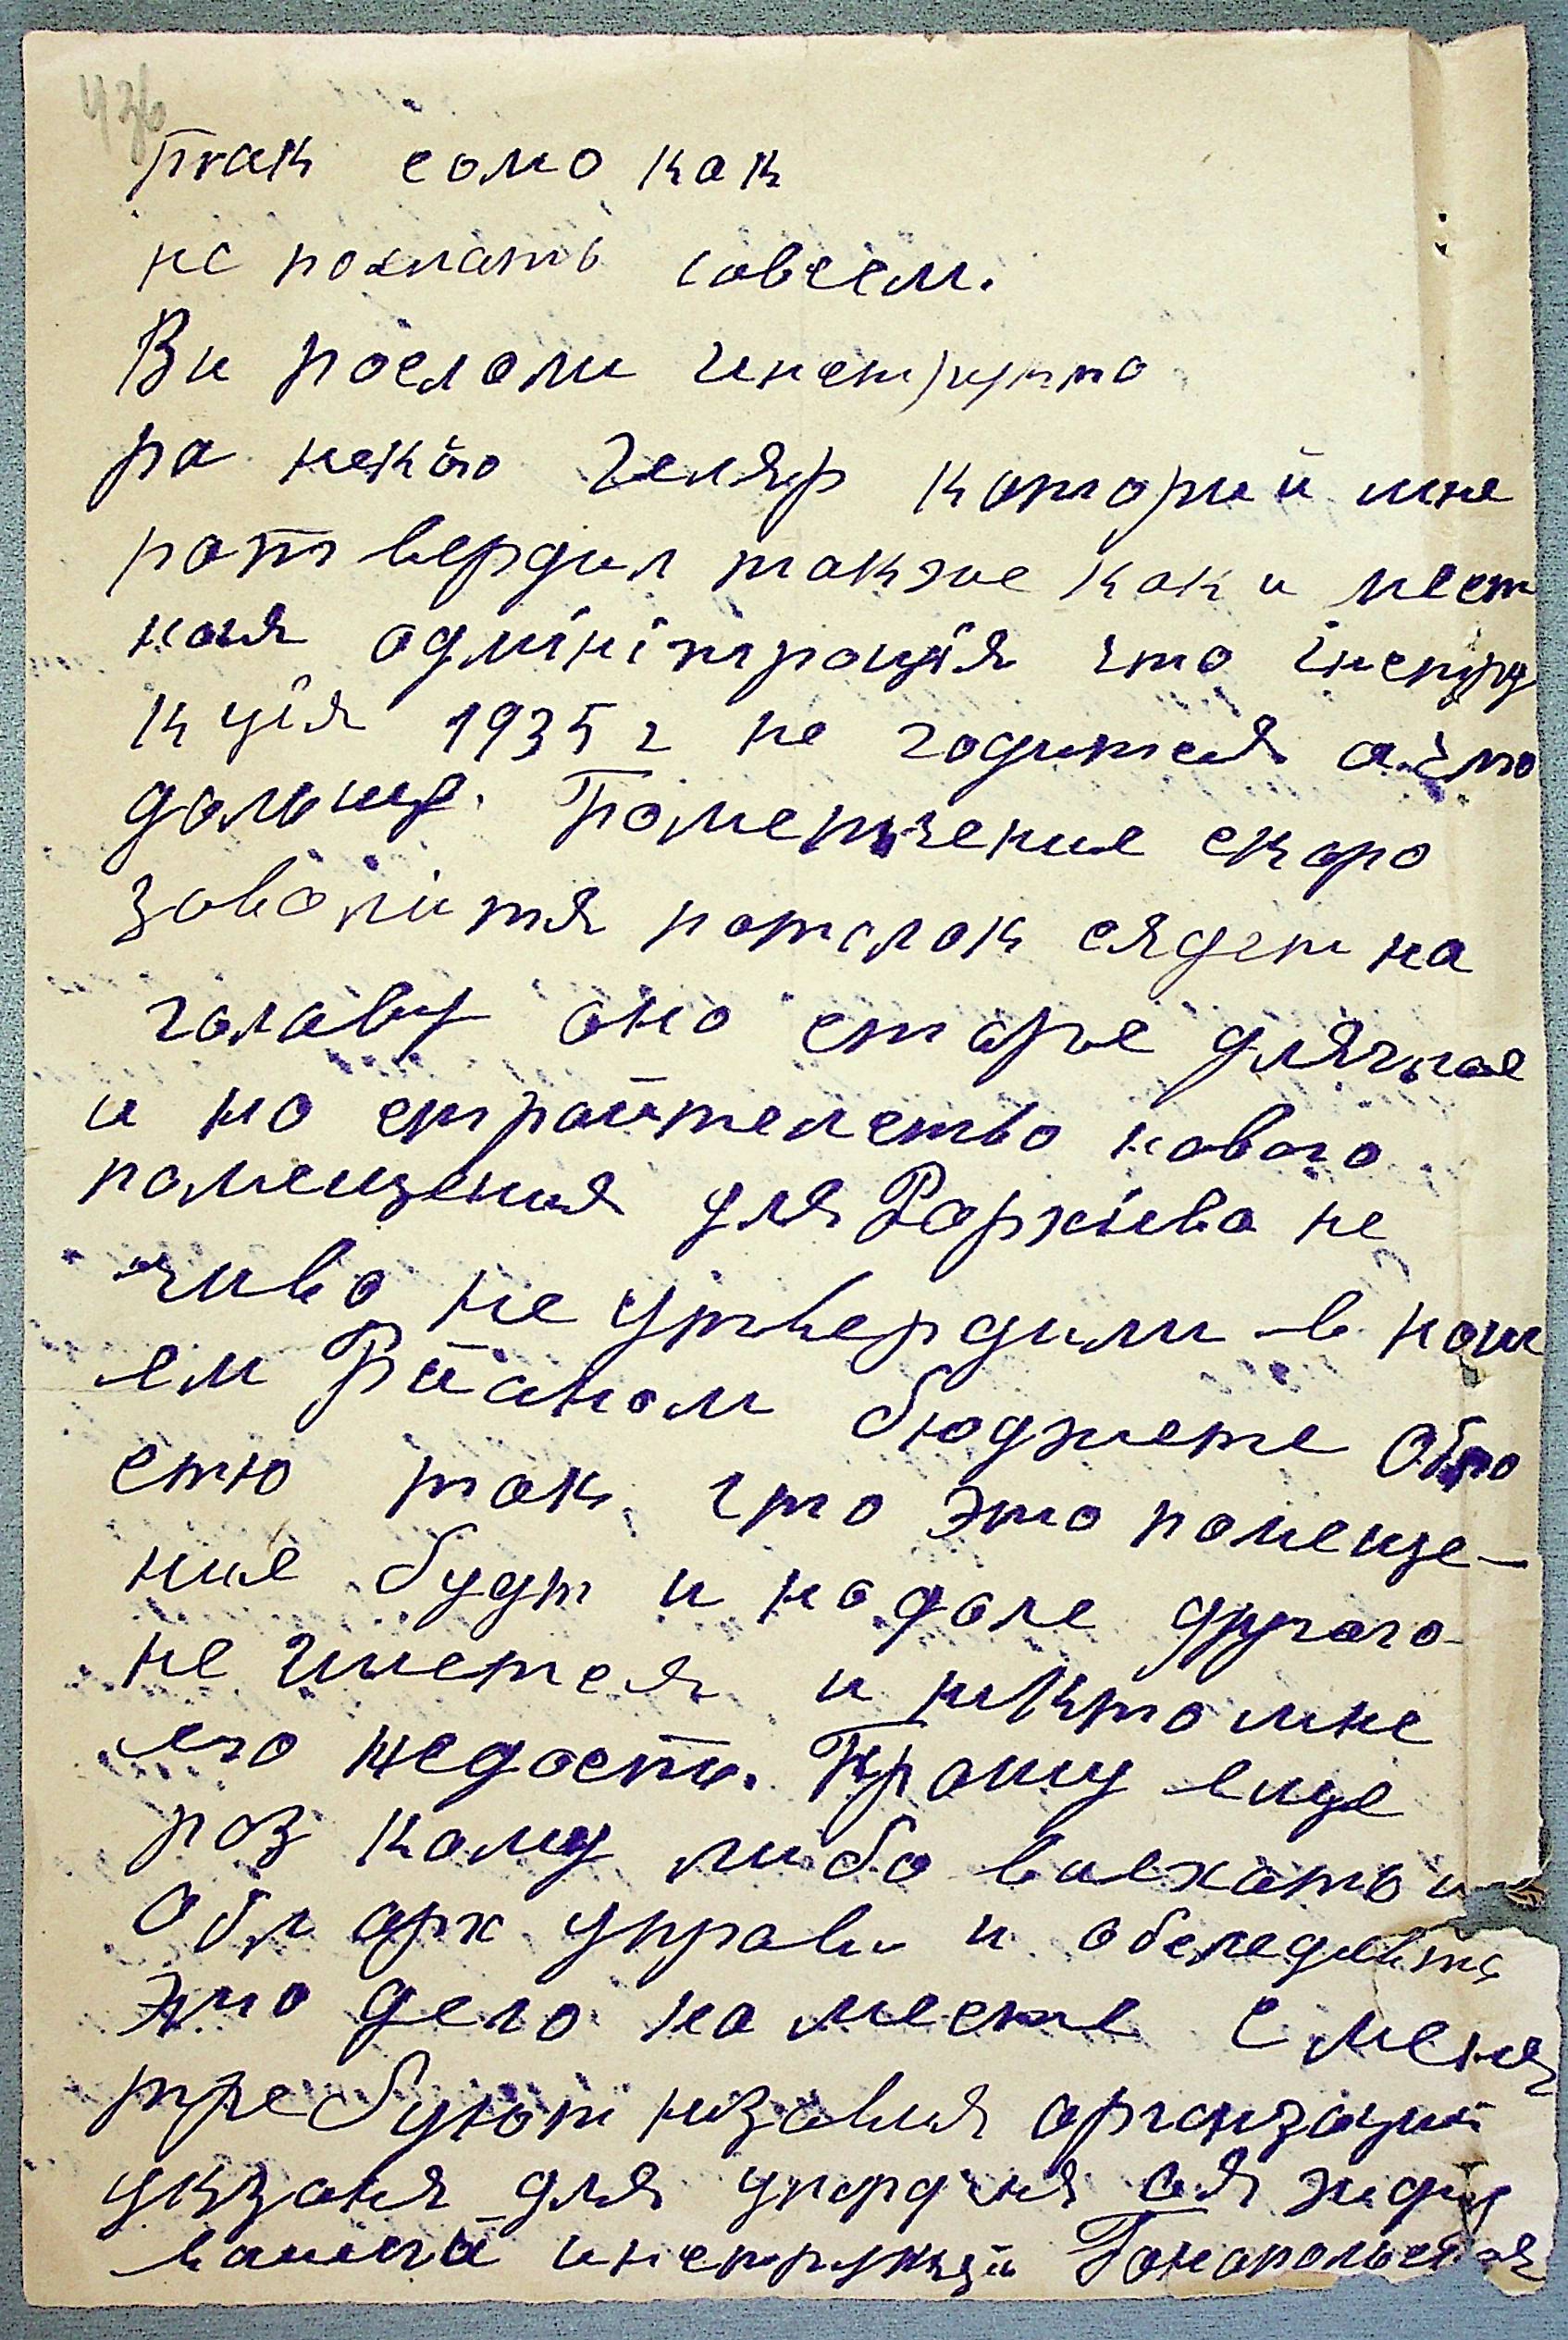 43б
так само как
не послать совсем.
Ви послали инструкто
ра некого Геляр каторий мне
потвердил также как и мест
ная адмініпрация что інстру
кция 1935 г не годится а что
дальше. Помещение скоро
заволится потолок сядет на
голаву оно старе
и на страйтелство нового
помещения для Рархива не
чиво не утвердили в наш
ем Рйаном бюджете
так что это помеще-
ние будт и надале другого
не имется и никто мне
его недасть. Прошу еще
раз кому либо виехать и
Обл арх управи и
это дело на месте С меня
требуют низавия органзации
укзаня для я жду
вашей инструкции